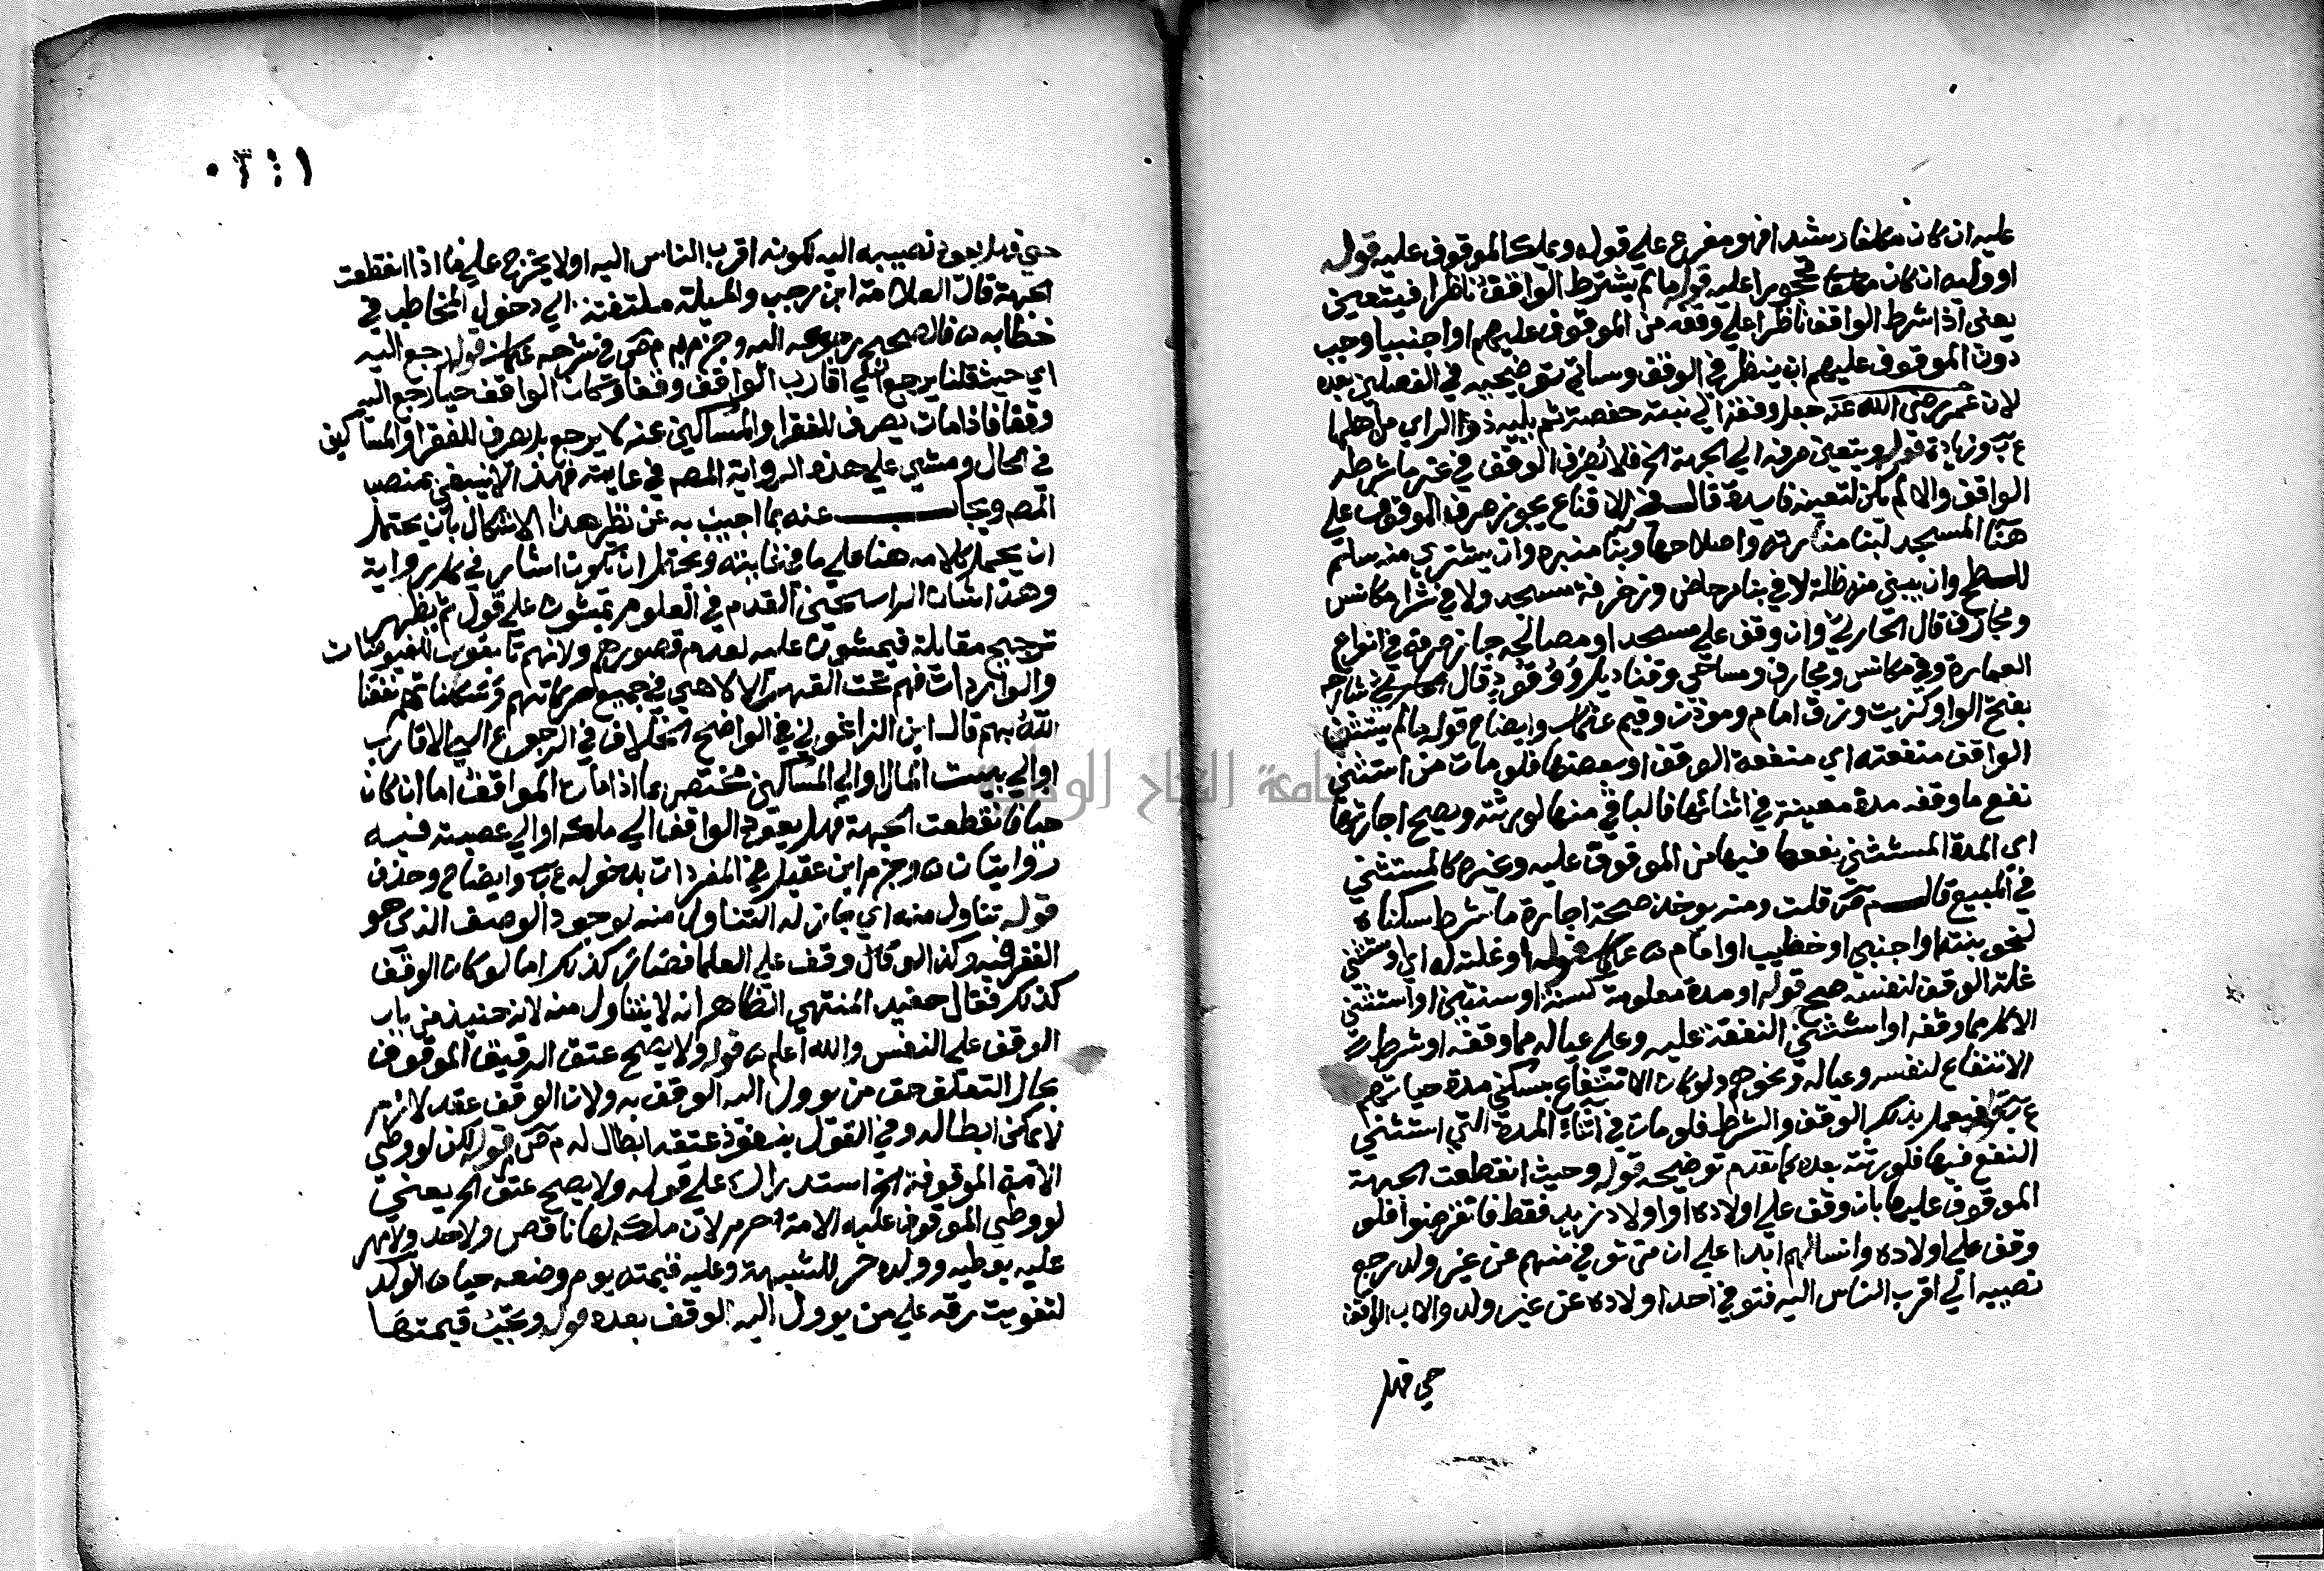 عليه ان كان مكلفا رشيدا فهو مفرع علي قوله ويملكه الموقوف عليه قوله
او وليه ان كان محجورا عليه قوله ما لم يشترط الواقف ناظرا فيتعين
يعني اذا شرط الواقف ناظرا علي وقفه من الموقوف عليهم او اجنبيا وجب
دون الموقوف عليهم ان ينظر في الوقف وسياتي توضيحه في الفصلين بعده
لان عمر رضي الله عنه جعل وقفه الي بنته حفصة ثم يليه ذو الراي من اهلها
ع ب وزيادة قوله ويتعين صرفه الي الجهة الخ فلا يصرف الوقف في غير ما شرطه
الواقف والا لم يكن لتعيينه فايدة قال في الاقناع يجوز صرف الموقوف علي
هنا المسجد لبنا منارته واصلاحها وبنا منبره وان يشتري منه سلم
للسطح وان يبني منه ظلة لا في بنا مرحاض وزخرفة مسجد ولا في شرا مكانس
ومجارف قال الحارثي وان وقف علي مسجد او مصالحه جاز صرفه في انواع
العمارة وفي مكانس ومجارف ومساحي وقناديل ووقود قال الحارثي شارحه
بفتح الواو كزيت ورزق امام وموذن وقيم وايضاح قوله ما لم يستثن
الواقف منفعته اي منفعة الوقف او بعضها فلو مات من استثني
نفع ما وقفه مدة معينة في اثنائها فالباقي منها لورثته ويصح اجارتها
اي المدة المستثني نفعها فيها من الموقوف عليه وغيره كالمستثني
في المبيع قال م ص قلت ومنه يوخذ صحة اجارة ما شرط سكناه
لنحو بنته او اجنبي او خطيب او امام قوله او غلته له اي استثني
غلة الوقف لنفسه صح قوله او مدة معلومة كسنة او سنتين او استثني
الاكل مما وقفه او استثني النفقة عليه وعلي عياله مما وقفه او شرط
الانتفاع لنفسه وعياله ونحوهم ولو كان الانتفاع بسكني مدة حياتهم
ع ب فيعمل بذلك الوقف والشرط فلو مات في اثناء المدة التي استثني
النفع فيها فلورثته بعده كما تقدم توضيحه قوله وحيث انقطعت الجهة
الموقوف عليها بان وقف علي اولاده او اولاد زيد فقط فانقرضوا فلو
وقف علي اولاده وانسالهم ابدا علي ان من توفي منهم عن غير ولد رجع
نصيبه الي اقرب الناس اليه فتوفي احد اولاده عن غير ولد والاب الواقف
حي فهل
١٣٠
حي فهل يعود نصيبه اليه لكونه اقرب الناس اليه اولا يخرج علي ما اذا انقطعت
الجهة قال العلامة ابن رجب والمسالة ملتفتة الي دخول المخاطب في
خطابه فالصحيح رجوعه اليه وجزم به م ص في شرحه قوله رجع اليه
اي حيث قلنا يرجع الي اقارب الواقف وقفا وكان الواقف حيا رجع اليه
وقفا فاذا مات يصرف للفقرا والمساكين عنه لا يرجع بل يصرف للفقرا والمساكين
في الحال ومشي علي هذه الرواية المصم في غايته فهذا لا ينبغي بمنصب
المصم ويجاب عنه بما اجيب به عن نظر هذا الاشكال بان يحتمل
ان يحمل كلامه هنا علي ما في غايته ويحتمل ان يكون اشار في كل رواية
وهذا شان الراسخين القدم في العلوم يمشون علي قول ثم يظهر
ترجيح مقابله فيمشون عليه لعدم قصورهم ولانهم تابعون للفيوضات
والواردات فهم تحت القهر الالاهي في جميع حركاتهم وسكناتهم نفعنا
الله بهم قال ابن الزاغوني في الواضح الخلاف في الرجوع الي الاقارب
او الي بيت المال او الي المساكين مختص بما اذا مات الواقف اما ان كان
حيا فانقطعت الجهة فهل يعود الوقف الي ملكه او الي عصبته فيه
روايتان وجزم ابن عقيل في المفردات بدخوله ع ب وايضاح وحذف
قوله تناول منه اي جاز له التناول منه لوجود الوصف الذي هو
الفقر فيه وكذا لو قال وقف علي العلما فصار كذلك اما لو كان الوقف
كذلك فقال حفيد المنتهي الظاهر انه لا يتناول منه لانه حنيذ من باب
الوقف علي النفس والله اعلم قوله ولا يصح عتق الرقيق الموقوف
بحال لتعلق حق من يوول اليه الوقف به ولان الوقف عقد لازم
لا يمكن ابطاله وفي القول بنفوذ عتقه ابطال له م ص قوله لكن لو وطي
الامة الموقوفة الخ استدراك علي قوله ولا يصح عتق الخ يعني
لو وطي الموقوف عليه الامة حرم لان ملكه لها ناقص ولا حد ولا مهر
عليه بوطيه وولده حر للشبهة وعليه قيمته يوم وضعه حيا الولد
لتفويت رقه علي من يوول اليه الوقف بعده قوله وتجب قيمتها
جامعة النجاح الوطنية